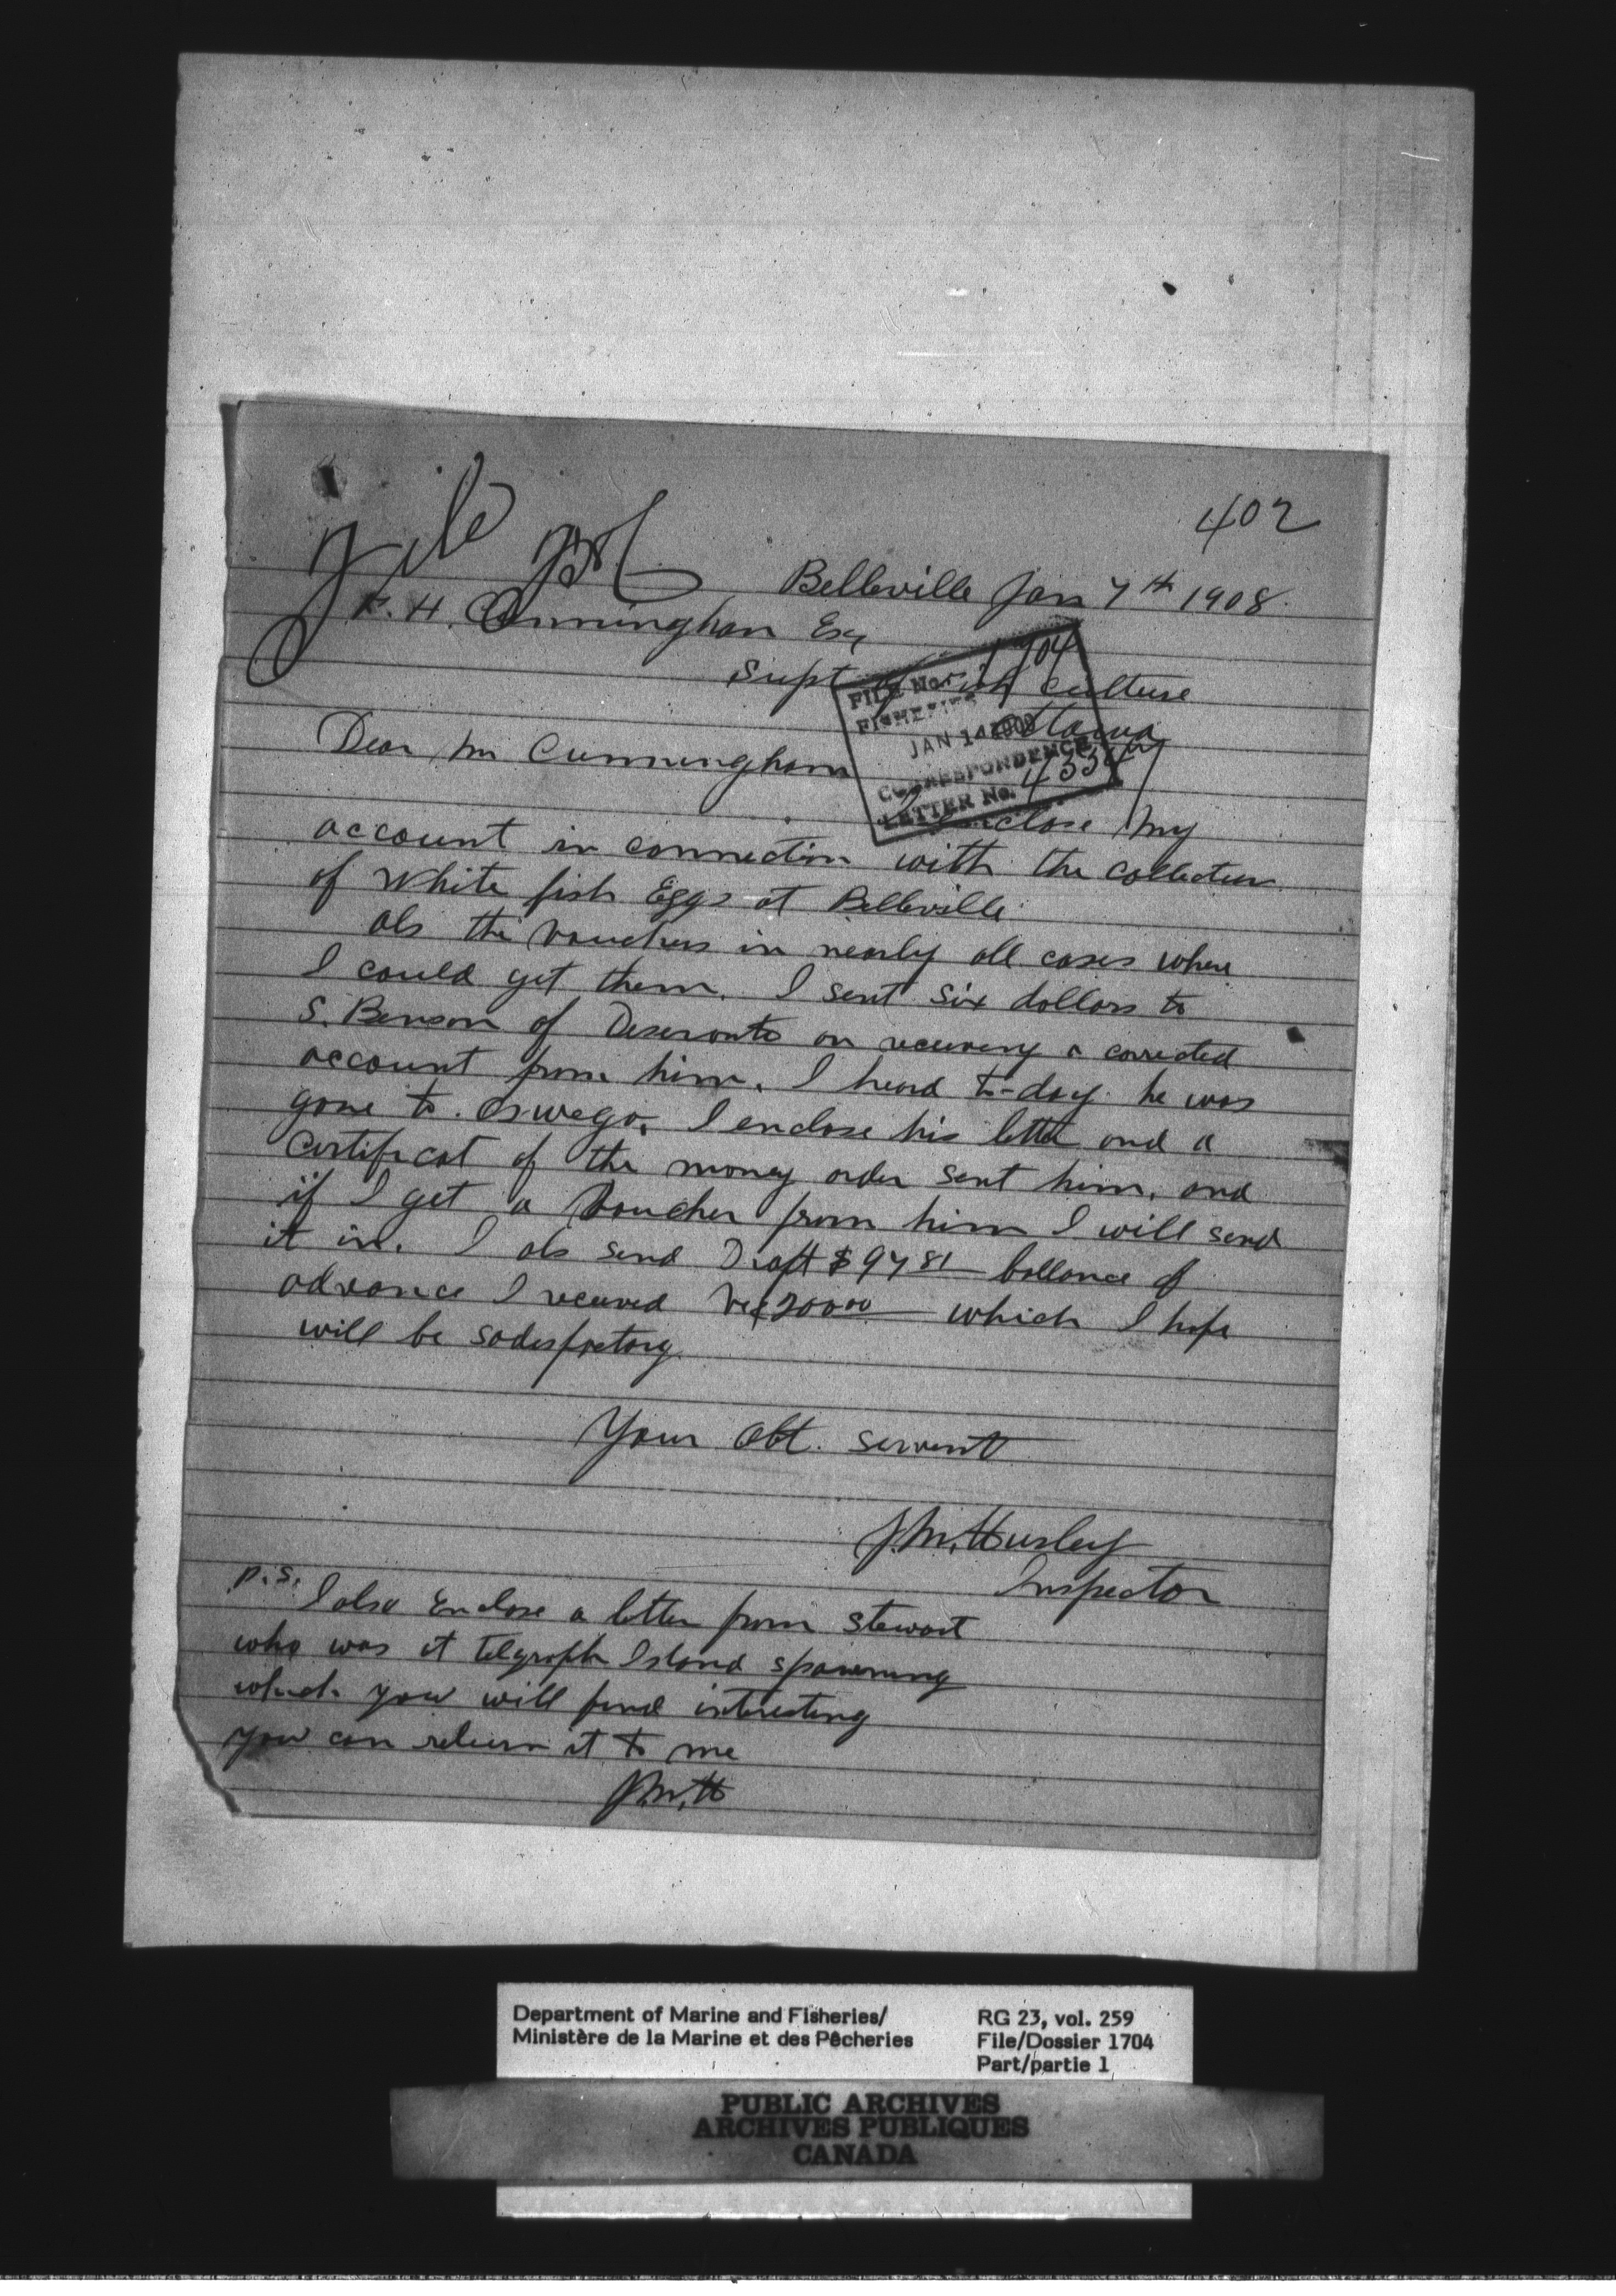 402
File
Belleville Jan 7th 1908.
F. H. Cunningham Esq
Supt of Fish Culture
Ottawa
FILE No. 1704
FISHERIES
JAN 14 1908
CORRESPONDENCE
LETTER No. 4334
Dear Mr Cunningham
I Enclose my
account in connection with the collection
of White fish Eggs at Belleville
als the vouchers in nearly all cases where
I could get them. I sent six dollars to
S. Benson of Deseronto on receiveing a corrected
account from him. I heard to-day he was
gone to Oswego. I enclose his letter and a
Certificat of the money order sent him, and
if I get a voucher from him I will send
it in. I als send Draft $97 81 ballance of
advance I received viz 200 00 which I hope
will be sadesfactory.
Your Obt. servent
J.M. Hurley
Inspector
P.S.
I also Enclose a letter from Stewart
who was at Telgraph Island spawning
which you will find interesting
you can return it to me
J.M.H
Department of Marine and Fisheries/
Ministère de la Marine et des Pêcheries
RG 23, vol. 259
File/Dossier 1704
Part/partie 1
PUBLIC ARCHIVES
ARCHIVES PUBLIQUES
CANADA